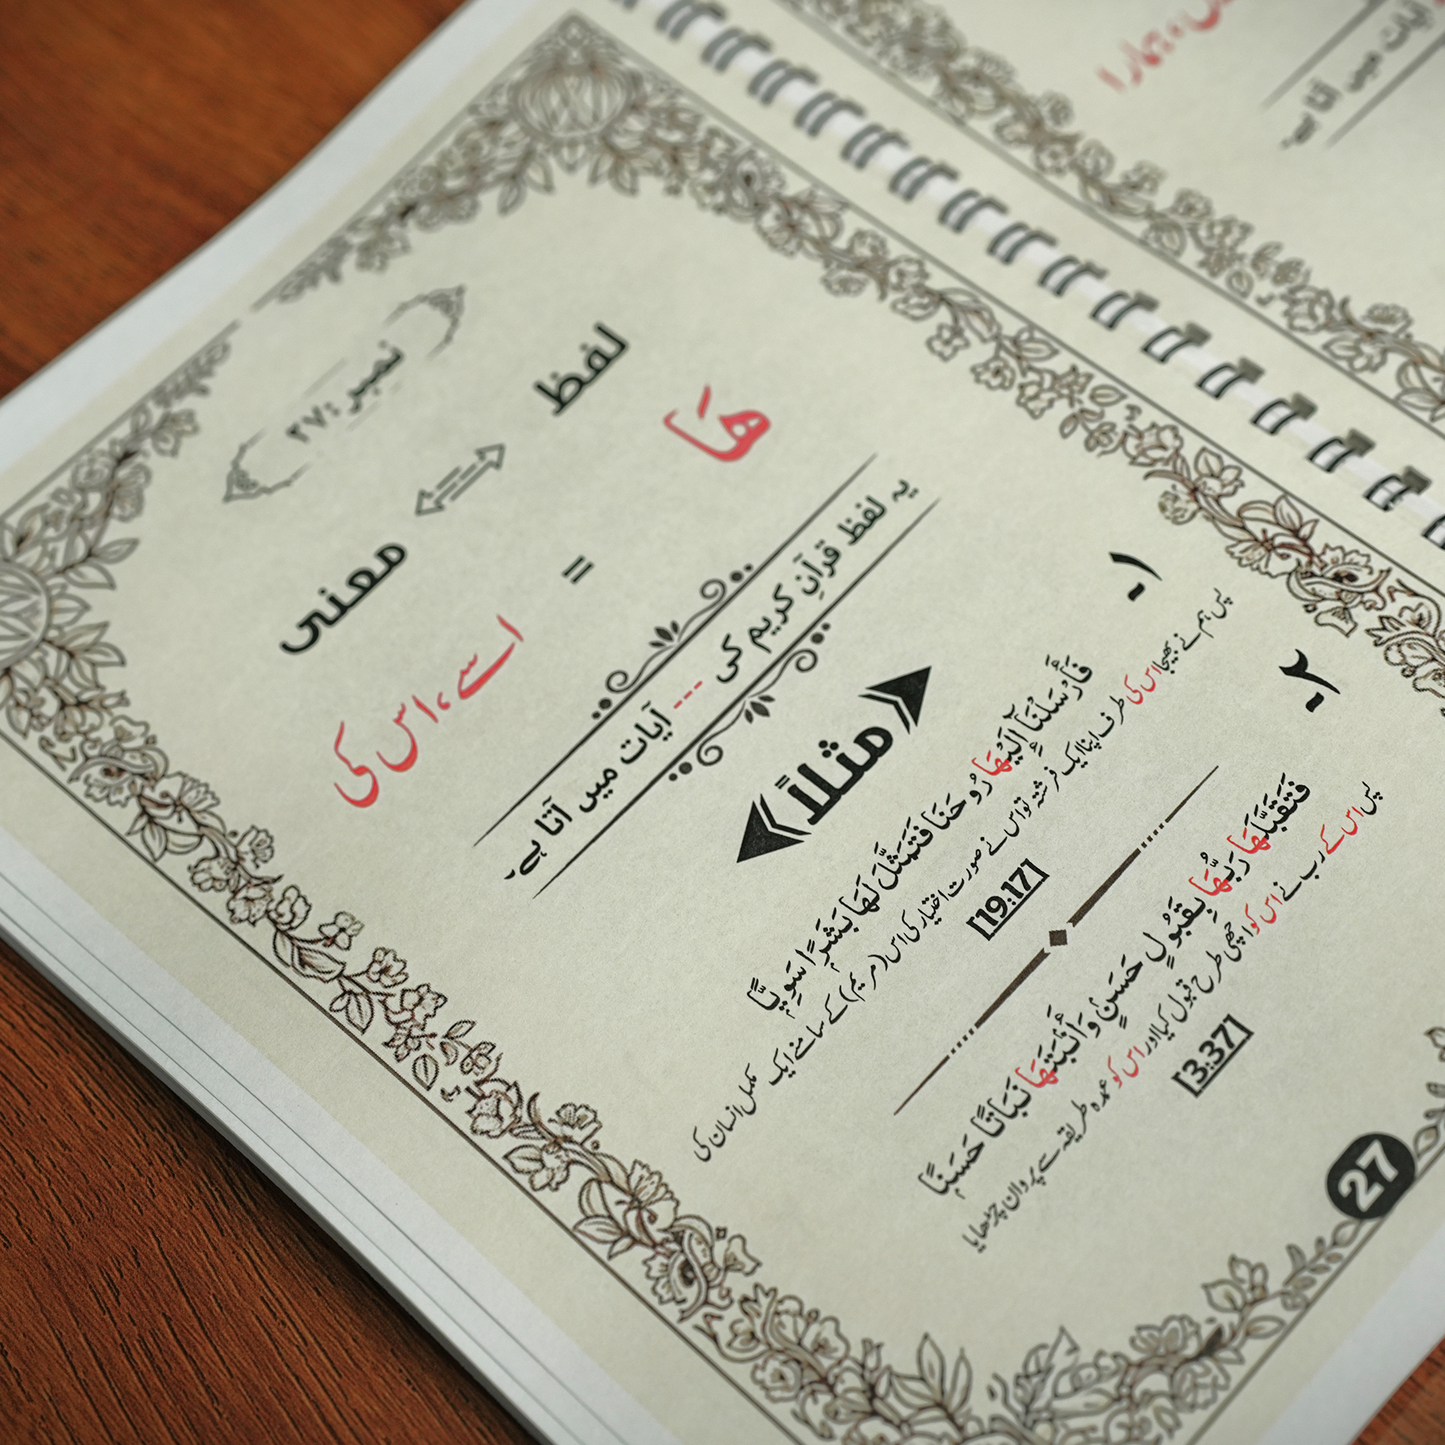 نمبر :۲۷
لفظ ⇔ معنی
هَا = اسے، اس کی
یہ لفظ قرآنِ کریم کی --- آیات میں آتا ہے،
مثلاً
۱-
فَأَرْسَلْنَآ إِلَيْهَا رُوحَنَا فَتَمَثَّلَ لَهَا بَشَرًا سَوِيًّا
پس ہم نے بھیجا اس کی طرف اپنا ایک فرشتہ تو اس نے صورت اختیار کی اس (مریم) کے سامنے ایک مکمل انسان کی
[19:17]
۲-
فَتَقَبَّلَهَا رَبُّهَا بِقَبُولٍ حَسَنٍ وَأَنْبَتَهَا نَبَاتًا حَسَنًا
پس اس کے رب نے اس کو اچھی طرح قبول کیا اور اس کو عمدہ طریقہ سے پروان چڑھایا
[3:37]
27
ہمارا
آیات میں آتا ہے،